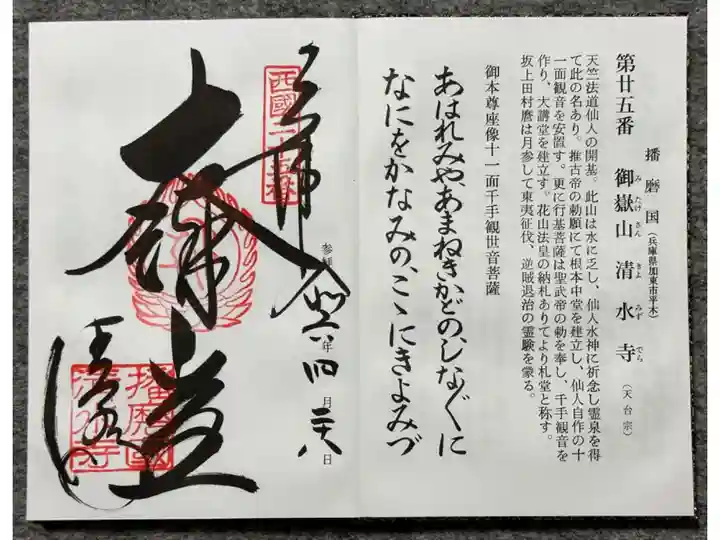 播磨国（兵庫県加東市平木）
第廿五番 御嶽山 清水寺（天台宗）
み たけ さん きよ みず でら
天竺法道仙人の開基。此山は水に乏し、仙人水神に祈念し霊泉を得
て此の名あり。推古帝の勅願にて根本中堂を建立し、仙人自作の十
一面観音を安置す。更に行基菩薩は聖武帝の勅を奉し、千手観音を
作り、大講堂を建立す。花山法皇の納札ありてより札堂と称す。
坂上田村麿は月参して東夷征伐、逆賊退治の霊験を蒙る。
御本尊座像十一面千手観世音菩薩
あはれみや、あまねきかどの、しなじなに
なにをかなみの、こゝにきよみづ
奉拝
西國二十五番
参拝 年 四月 二十八日
大講堂
清水寺
播磨國
清水寺